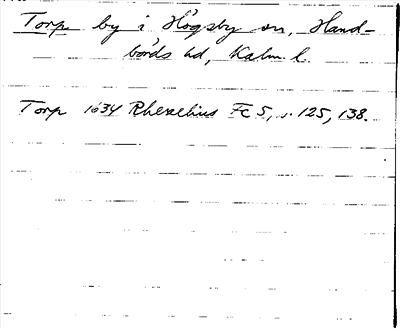 Torp by i Högsby sn, Hand-
börds hd, Kalm. l.
Torp 1634 Rhezelius Fc 5, s. 125, 138.